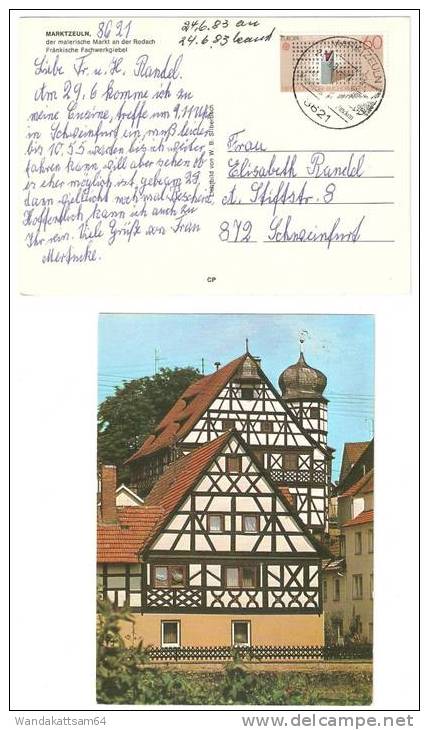 MARKTZEULN,
der malerische Markt an der Rodach
Fränkische Fachwerkgiebel
8621
24.6.83 an
24.6.83 beant
EUROPA
60
8621
Liebe Fr. u. H. Randel.
Am 29.6 komme ich zu
meine, treffe um 9.11 Uhr
in Schweinfurt ein, muß leider
bis 10.55 warten bis ich weiter
fahren kann, will aber sehen ob
es eher möglich ist, gebe am 29
dann vielleicht noch mal Bescheid.
Hoffentlich kann ich auch zu
Ihr. Viele Grüße von Frau
Frau
Elisabeth Randel
A. Stiftsstr. 8
872 Schweinfurt
CP
Wandakattsam64
© delcampe.net